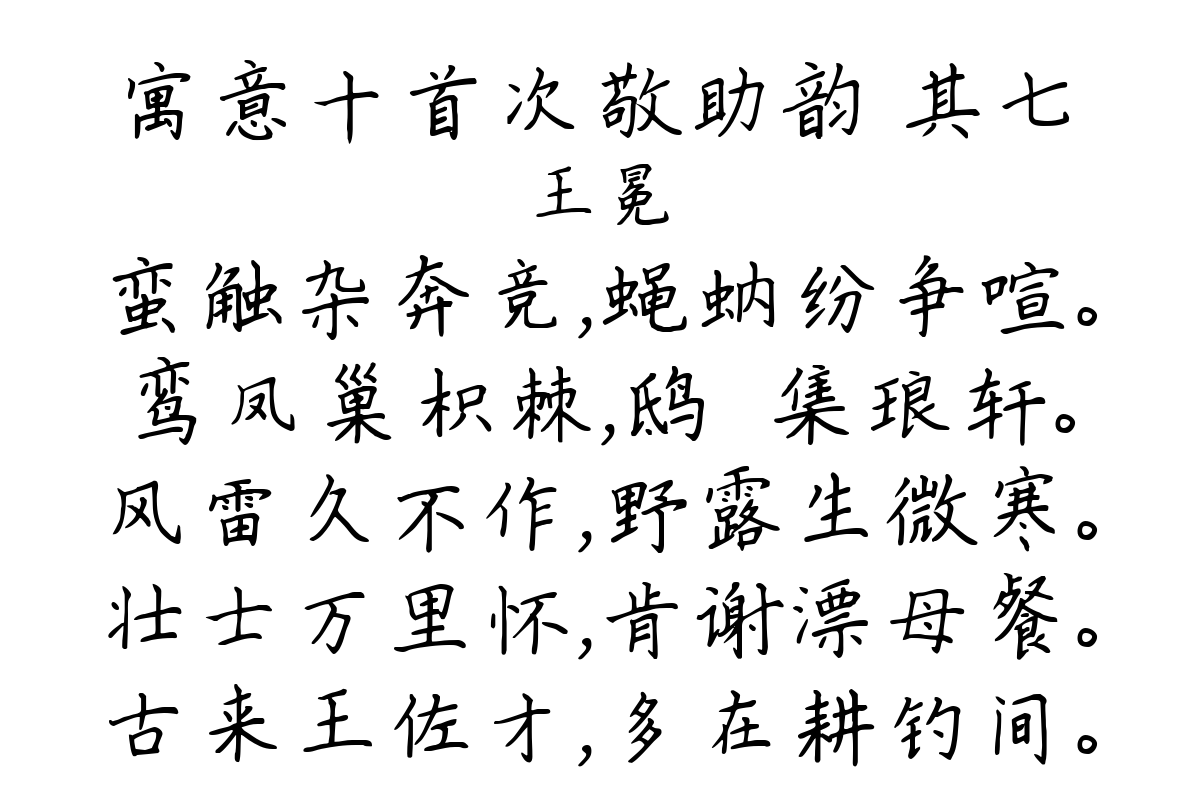 寓意十首次敬助韵 其七
王冕
蛮触杂奔竞,蝇蚋纷争喧。
鸾凤巢枳棘,鸱 集琅轩。
风雷久不作,野露生微寒。
壮士万里怀,肯谢漂母餐。
古来王佐才,多在耕钓间。